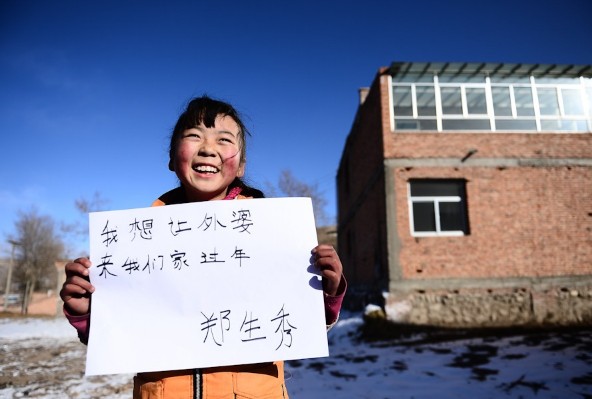 我想让外婆
来我们家过年
郑生秀